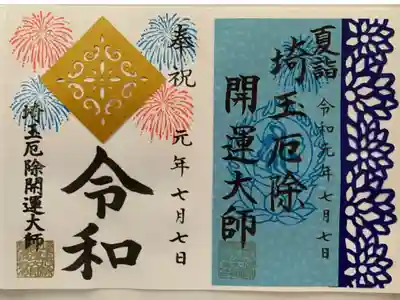 夏詣
令和元年七月七日
埼玉厄除
開運大師
奉祝
元年七月七日
令和
埼玉厄除開運大師